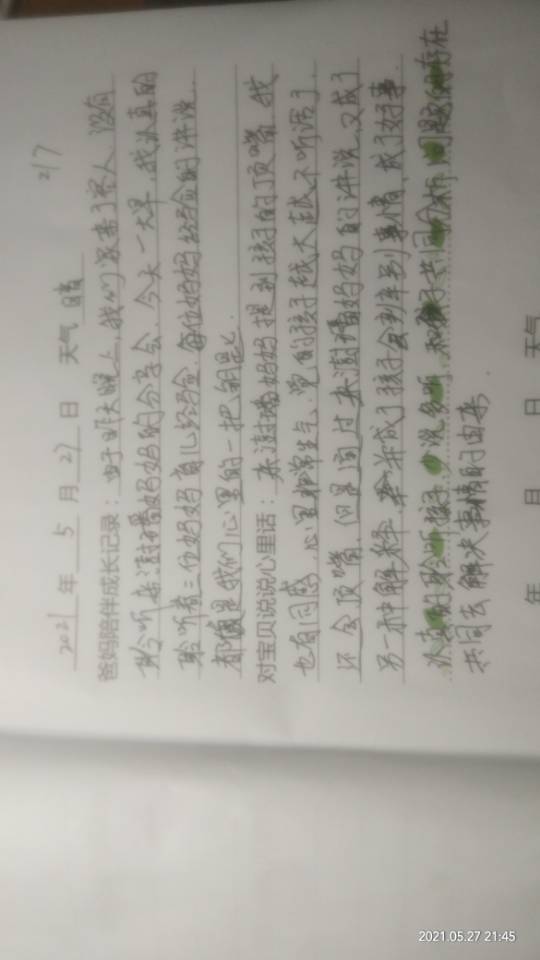 2/7
2021 年 5 月 27 日 天气 晴
爸妈陪伴成长记录: 由于昨天晚上, 我们家来了客人 没有
聆听 妈妈的分享会. 今天一大早 我认真的
聆听着三位妈妈育儿经验 每位妈妈经验的讲说..
都像是我们心里的一把钥匙.
对宝贝说说心里话: 妈妈提到孩子的顶嘴 我
也有同感. 心里非常生气. 觉的孩子越大越不听话了.
还会顶嘴, 但是通过 妈妈的讲说 又成了
另一种解释 成了孩子会 事情, 成了好事
认真的聆听孩子 少说多听 和孩子共同分析 问题的存在
共同去解决事情的由来.
年 月 日 天气
2021.05.27 21:45